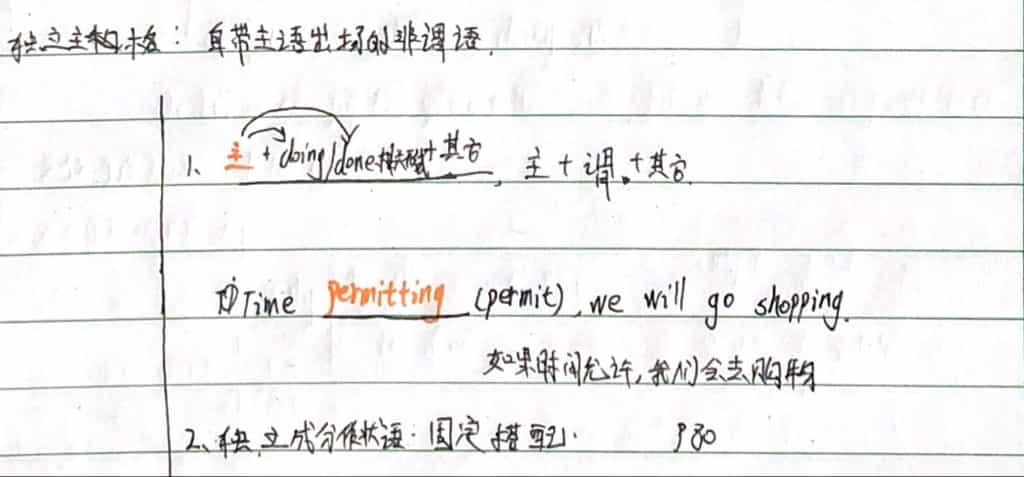 独立主构格：自带主语出场的非谓语.
1、主 + doing/done + 其它, 主 + 谓. + 其它.
① Time permitting (permit), we will go shopping.
如果时间允许, 我们会去购物
2、独立成分作状语：固定搭配. P30